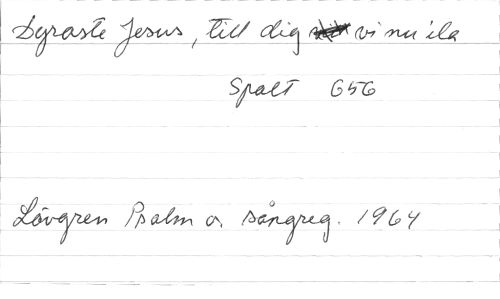 Dyraste Jesus, till dig vi nu ila
Spalt 656
Lövgren Psalm o. sångreg. 1964